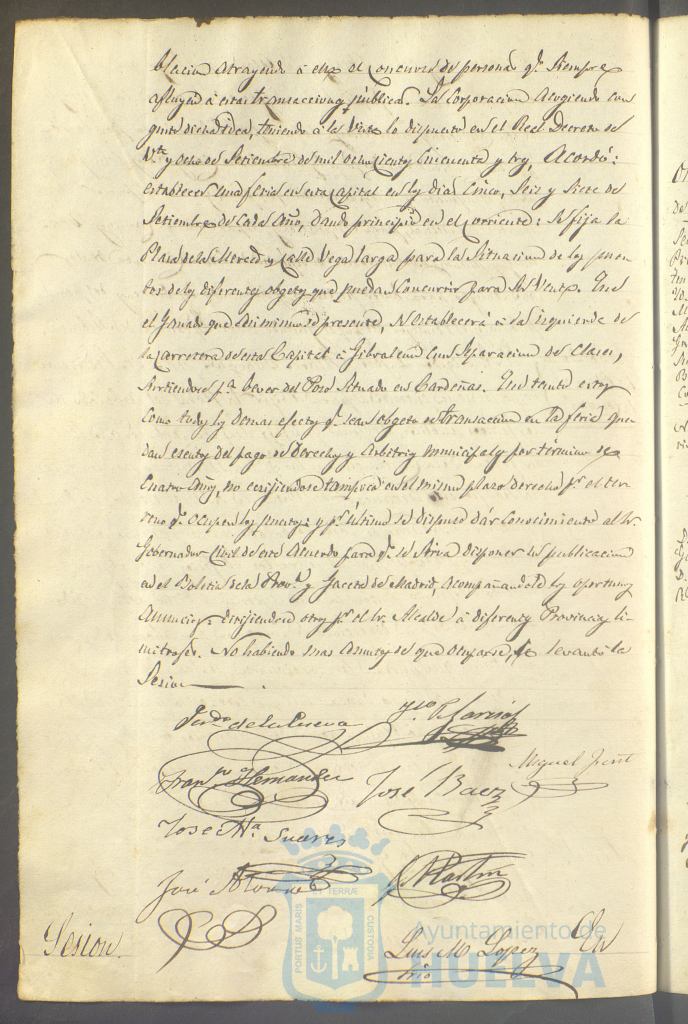 blacion atrayendo á ella el concurso de personas qe. siempre
afluyen á estas transacciones públicas. La Corporacion acogiendo con
gusto dicha idea, teniendo á la vista lo dispuesto en el Real Decreto de
Vte. y ocho de Setiembre de mil ochocientos cincuenta y tres, Acordó:
establecer una feria en esta Capital en los dias Cinco, Seis y Siete de
Setiembre de cada año, dando principio en el corriente: Se fija la
Plaza de la Merced y calle Vega larga para la situacion de los pues-
tos de los diferentes objetos que puedan concurrir para su venta. Que
el ganado que asi mismo se presente, se establecerá á la izquierda de
la carretera de esta Capital á Gibraleon con separacion de clases,
surtiendose pa. bever del Pozo situado en Cardeñas. Que tanto estos
como todos los demas efectos qe. sean objeto de transaccion en la feria que-
dan esentos del pago de derechos y arbitrios municipales por término de
cuatro años, no exijiendose tampoco en el mismo plazo derechos pr. el ter-
reno qe. ocupen los puestos: y pr. último se dispuso dár conocimiento al Sr.
Gobernador Civil de este Acuerdo para qe. se sirva disponer su publicacion
en el Boletin de la Prova. y Gaceta de Madrid, acompañandole los oportunos
anuncios: dirijiendose otros pr. el Sr. Alcalde á diferentes Provincias li-
mitrofes. No habiendo mas asuntos de que ocuparse, se levantó la
Sesion
Ferdo. de la Cueva
Franco. Hernandez
José Baez
Miguel
Jose Ma. Suares
José
Luis M. Lopez
Srio
Sesion.
En
PORTUS MARIS ET TERRÆ CUSTODIA
Ayuntamiento de
HUELVA